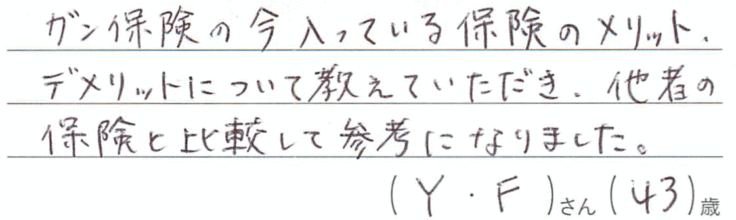 ガン保険の今入っている保険のメリット、
デメリットについて教えていただき、他者の
保険と比較して参考になりました。
(Y・F)さん(43)歳